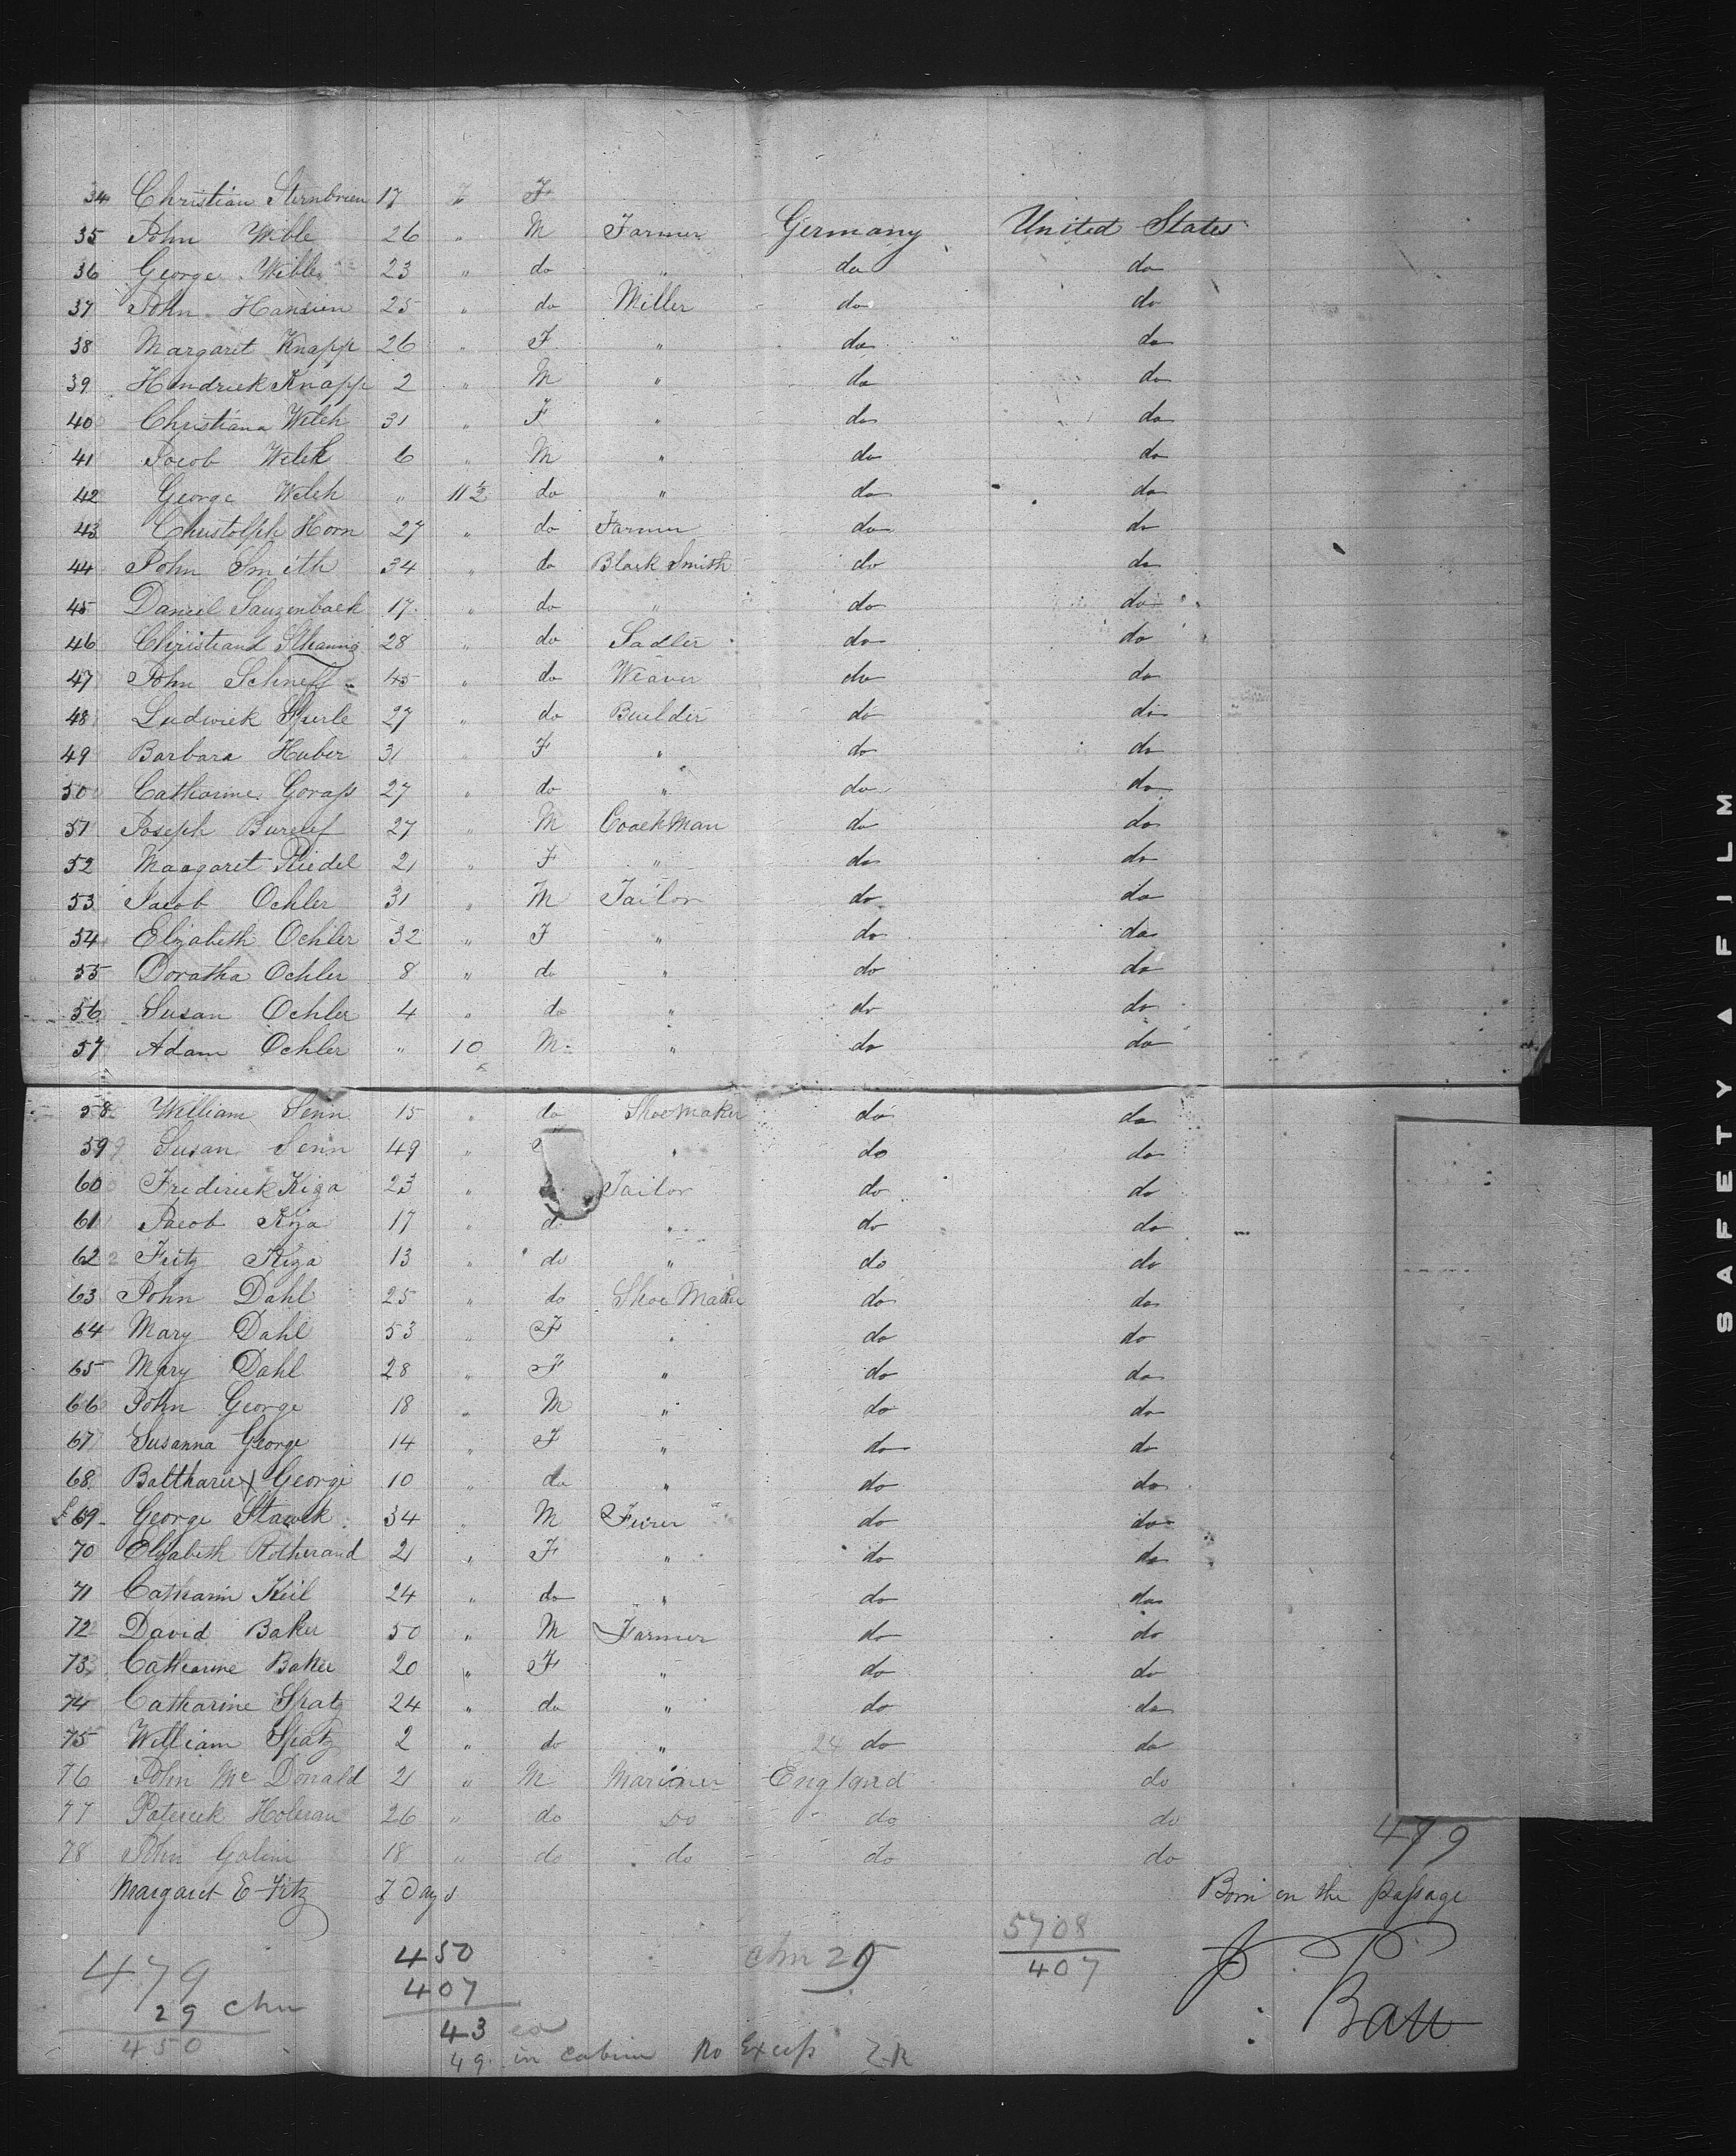 34 Christian Sternbrien 17 " F
35 John Wible 26 " M Farmer Germany United States
36 George Wible 23 " do " do do
37 John Hansien 25 " do Miller do do
38 Margaret Knapp 26 " F " do do
39 Hendrick Knapp 2 " M " do do
40 Christiana Welch 31 " F " do do
41 Jacob Welch 6 " M " do do
42 George Welch " 11½ do " do do
43 Christolph Horn 27 " do Farmer do do
44 John Smith 34 " do Black Smith do do
45 Daniel Sauzenback 17 " do " do do
46 Christiana 28 " do Sadler do do
47 John Schneff 45 " do Weaver do do
48 Ludwick Sperle 27 " do Builder do do
49 Barbara Huber 31 " F " do do
50 Catharine Gorass 27 " do " do do
51 Joseph 27 " M Coachman do do
52 Maagaret Riedel 21 " F " do do
53 Jacob Ochler 31 " M Tailor do do
54 Elizabeth Ochler 32 " F " do do
55 Doratha Ochler 8 " do " do do
56 Susan Ochler 4 " do " do do
57 Adam Ochler " 10 M " do do
58 William Senn 15 " do Shoemaker do do
59 Susan Senn 49 " " do do
60 Frederick Kiga 23 " Tailor do do
61 Jacob Kiga 17 " do " do do
62 Fritz Kiga 13 " do " do do
63 John Dahl 25 " do Shoe Maker do do
64 Mary Dahl 53 " F " do do
65 Mary Dahl 28 " F " do do
66 John George 18 " M " do do
67 Susanna George 14 " F " do do
68 George 10 " do " do do
69 George Stawek 34 " M do do
70 Elizabeth Rotherand 21 " F " do do
71 Catharin Keil 24 " do " do do
72 David Baker 50 " M Farmer do do
73 Catharine Baker 20 " F " do do
74 Catharine Spatz 24 " do " do do
75 William Spatz 2 " do " 24 do do
76 John Mc Donald 21 " M Mariner England do
77 Paterick Holeran 26 " do Do do do
78 John Galvin 18 " do do do do
479
Margaret E Fitz 7 Days Born on the passage
479
29 chn
450
450
407
43
49 in cabin No Excess
chn 29
5708
407
SAFETY FILM